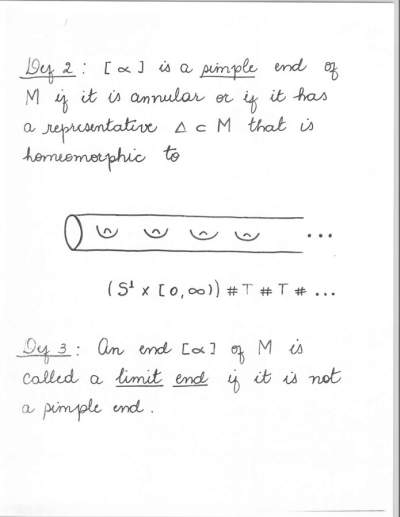 Def 2 : [α] is a simple end of
M if it is annular or if it has
a representative Δ ⊂ M that is
homeomorphic to
...
(S¹ x [0,∞)) # T # T # ...
Def 3 : An end [α] of M is
called a limit end if it is not
a simple end.